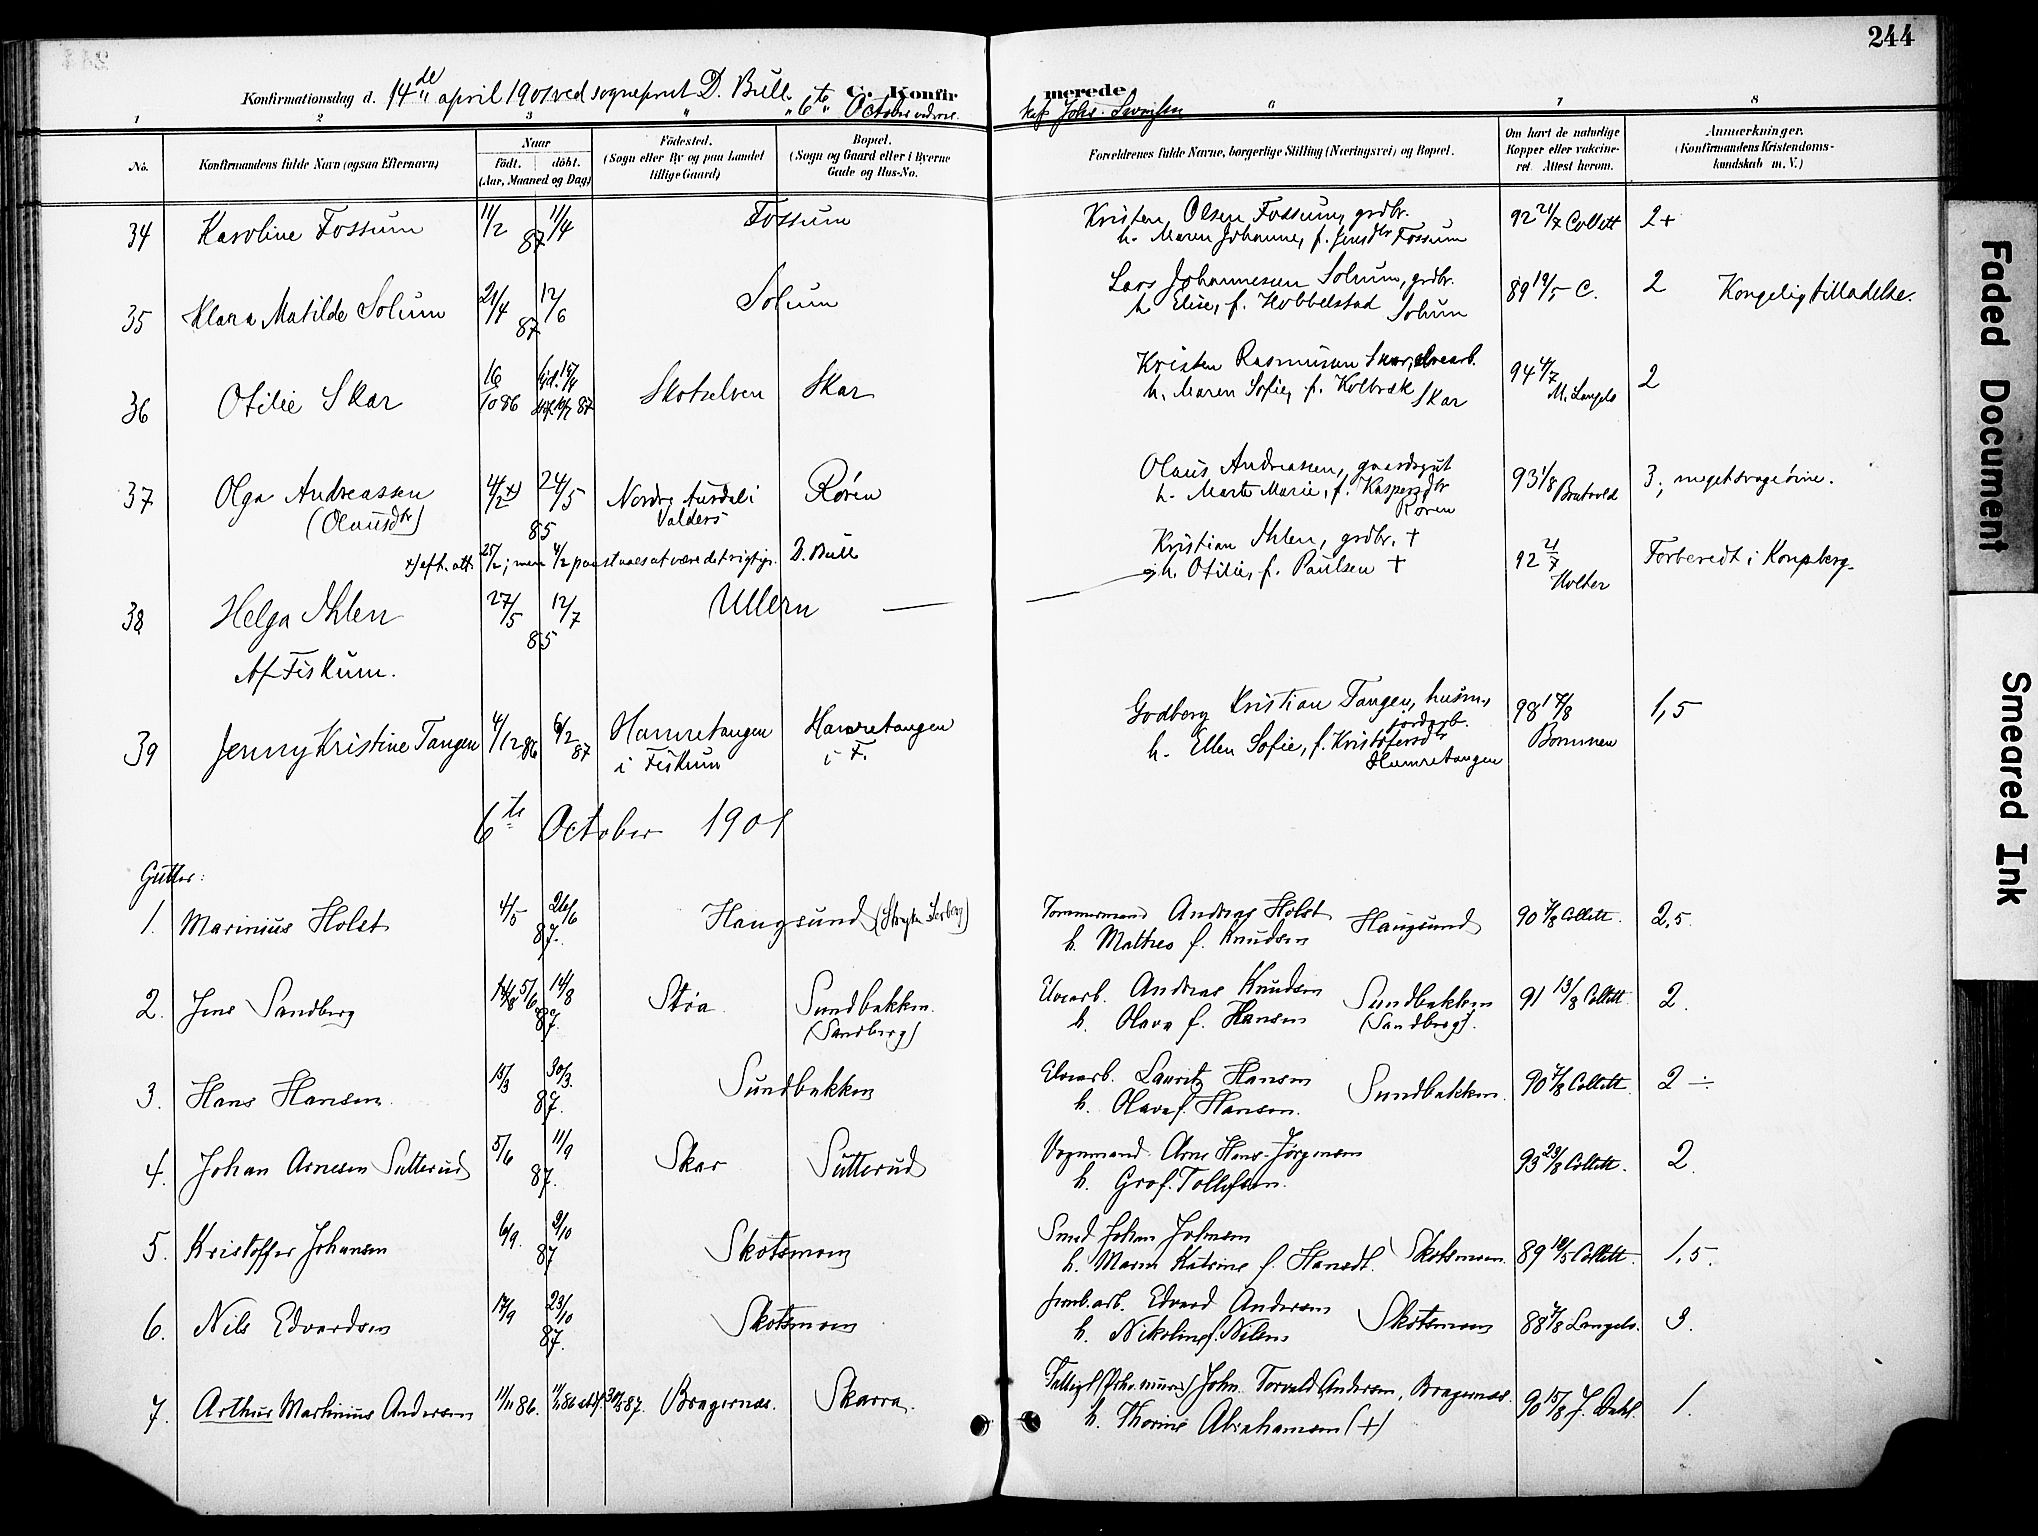 244
Konfirmationsdag d. 14de april 1901 ved sogneprest D. Bull. 6te October ved res. kap. Johs.
C. Konfirmerede
1 2 3 4 6 7 8
No.
Konfirmandens fulde Navn (ogsaa Efternavn)
Naar
født. døbt.
(Aar, Maaned og Dag)
Fødested.
(Sogn eller By og paa Landet
tillige Gaard)
Bopæl.
(Sogn og Gaard eller i Byerne
Gade og Hus-No.
Forældrenes fulde Navne, borgerlige Stilling (Næringsvei) og Bopæl.
Om havt de naturlige
Kopper eller vakcine-
ret. Attest herom.
Anmerkninger.
(Konfirmandens Kristendoms-
kundskab m. V.)
34 Karoline Fossum 11/2 11/4 87 Fossum Kristen Olsen Fossum, grdbr. 92 21/7 Collett 2+
h. Maren Johanne, f. Jensdtr Fossum
35 Klara Matilde Solum 21/4 12/6 87 Solum Lars Johannesen Solum, grdbr. 89 19/5 C. 2 Kongelig tilladelse.
h. Elise, f. Hobbelstad Solum
36 Otilie Skar 16/10 86 Skotselven Skar Kristen Rasmussen Skar, elvearb. 94 4/7 M. Langels 2
h. Maren Sofie, f. Kolbræk Skar
37 Olga Andreassen 4/2 x) 24/5 85 Nordre Aurdal i Valders Røren Olaus Andreassen, 93 1/8 3; meget svage evne.
(Olausdtr) h. Marte Marie, f. Kaspersdtr Røren
x) efter att. 25/2; men 4/2 paastaaes at være det rigtige. D. Bull
38 Helga Ihlen 27/5 12/7 85 Ullern — Kristian Ihlen, grdbr. + 92 21/7 Holter Forberedt i Kongsberg.
h. Otilie, f. Paulsen +
Af Fiskum.
39 Jenny Kristine Tangen 4/12 86 6/2 87 Hamretangen i Fiskum Hamretangen i F. Godberg Kristian Tangen, husm., jordarb. 98 Bommen 1,5
h. Ellen Sofie, f. Kristofersdtr Hamretangen
6te October 1901
Gutter:
1. Marinius Holst 4/5 26/6 87. Haugsund Tømmermand Andreas Holst Haugsund 90 7/8 Collett. 2,5.
h. Mathea f. Knudsen
2. Jens Sandberg 5/6 14/8 87. Støa Sundbakken. (Sandberg) Elvearb. Andreas Knudsen Sundbakken (Sandberg). 91 13/8 Collett. 2.
h. Olava f. Hansen
3. Hans Hansen. 15/3 30/3. 87. Sundbakken Elvearb. Lauritz Hansen Sundbakken. 90 7/8 Collett. 2 ÷
h. Olava f. Hansen.
4. Johan Arnesen Sutterud 5/6 11/9 87. Skar Sutterud Vognmand Arne Hans Jørgensen 93 23/8 Collett. 2.
h. Gro f. Tollefsen.
5. Kristoffer Johansen 6/9. 9/10 87 Skotsmoen Smed Johan Johnsen Skotsmoen 89 19/5 Collett. 1,5.
h. Maren Katrine f. Hansdt.
6. Nils Edvardsen 17/9 23/10 87. Skotsmoen Edvard Andersen Skotsmoen 88 7/8 Langels. 3.
h. Nikoline f. Nilsen
7. Arthur Martinius Andersen 11/11 86. Bragernæs. Skarra. John Torvald Andersen, Bragernæs. 90 15/8 J. Dahl. 1.
h. Thorine Abrahamsen (+)
Faded Document
Smeared Ink